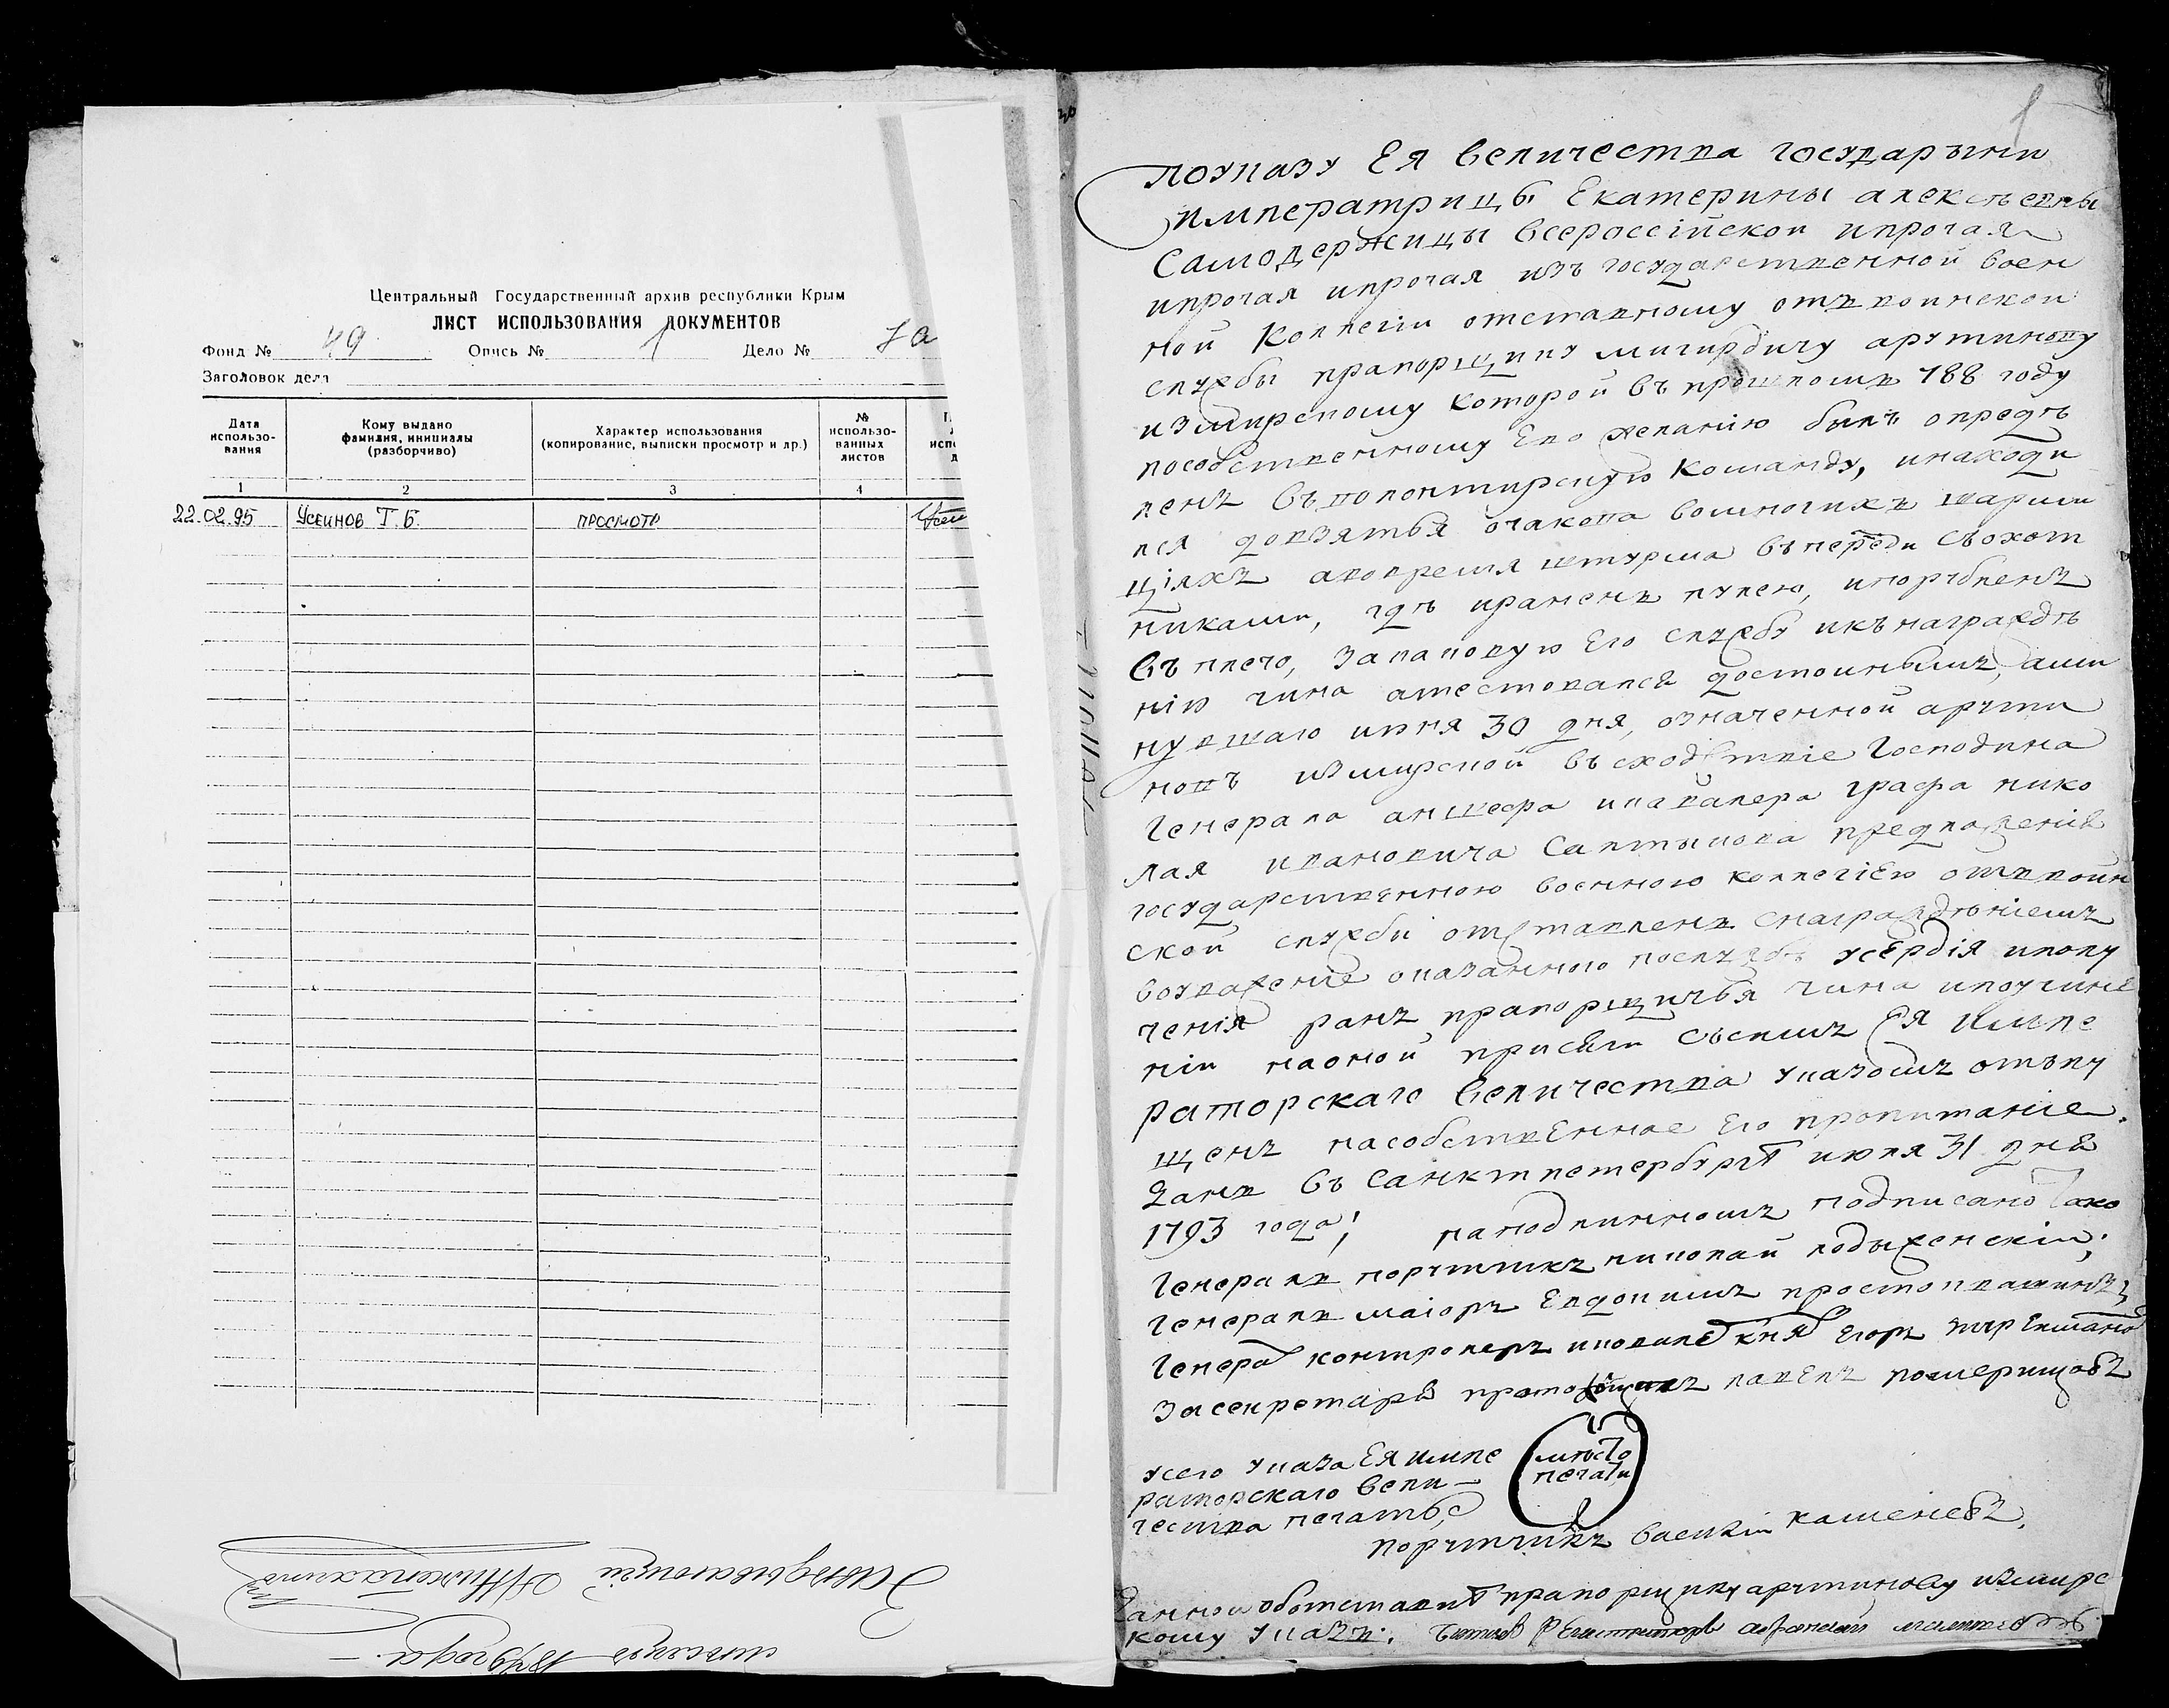 Центральный Государственный архив республики Крым
ЛИСТ ИСПОЛЬЗОВАНИЯ ДОКУМЕНТОВ
Фонд № 49 Опись № 1 Дело № 7а
Заголовок дела
Дата использования
Кому выдано фамилия, инициалы (разборчиво)
Характер использования (копирование, выписки просмотр и др.)
№ использованных листов
1 2 3 4
22.02.95 Усеинов Т.Б. просмотр
Заведывающий
1879 года
1
поуказу Ея величества государыни
императрицы Екатерины алексъевны
Самодержицы всероссiйской ипрочая
ипрочая ипрочая изъ государственной воен
ной Коллегiи отставному отъ воинской
службы прапорщику мигирдичу арутинову
измирскому которой въ прошломъ 788 году
пособственному Его желанiю былъ опредъ
ленъ въ волонтирскую команду, инаходи
лся довзятья очакова вомногихъ партии
цiяхъ авовремя штурма въпереди съохот
никами, гдъ ираненъ пулею, ипорубленъ
въ плечо, затаковую Его службу икънагражде
нiю чина атестовался достоинымъ, ами
нувшаго июня 30 дня, означенной арути
новъ измирской въ сходствiе Господина
Генерала аншефа икавалера графа нико
лая ивановича Салтыкова предложенiя
государственною военною коллегiею отъ воин
ской службы отставленъ снаграждънiемъ
воуваженiе оказанного послужбъ усердiя иполу
ченiя ранъ прапорщичья чина ипоучине
нiи наоной присяги съсимъ Ея импе
раторскаго величества указомъ отъпу
щенъ насобственное Его пропитанiе.
Данъ въ Санктпетербургъ июля 31 дня
1793 года; наподлинномъ подписано тако
Генералъ порутчикъ николай
Генералъ маiоръ Евдокимъ
Генерал контролеръ икавале княз Егоръ
Засекретаря павелъ померанцовъ
усего указа Ея импе
раторскаго вели-
чества печать,
мъсто
печати
порутчикъ василiй каменевъ.
прапорщику арутинову измирс
кому указъ.